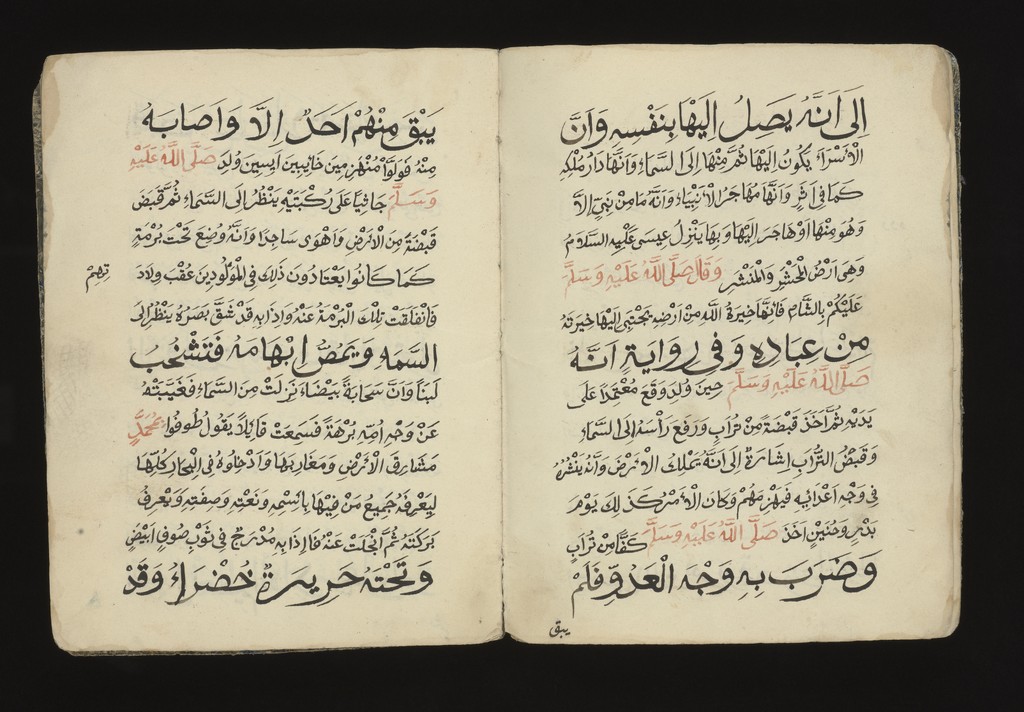 اِلَى اَنَّهُ يَصِلُ اِلَيْهَا بِنَفْسِهِ وَاَنَّ
الْاَسْرَاءَ يَكُونُ اِلَيْهَا ثُمَّ مِنْهَا اِلَى السَّمَاءِ وَاَنَّهَا دَارُ مُلْكِهِ
كَمَا فِى اَثَرٍ وَاَنَّهَا مُهَاجَرُ الْاَنْبِيَاءِ وَاَنَّهُ مَا مِنْ نَبِيٍّ اِلَّا
وَهُوَ مِنْهَا اَوْ هَاجَرَ اِلَيْهَا وَبِهَا يَنْزِلُ عِيسَى عَلَيْهِ السَّلَامُ
وَهِىَ اَرْضُ الْمَحْشَرِ وَالْمَنْشَرِ وَقَالَ صَلَّى اللَّهُ عَلَيْهِ وَسَلَّمَ
عَلَيْكُمْ بِالشَّامِ فَاِنَّهَا خِيَرَةُ اللَّهِ مِنْ اَرْضِهِ يَجْتَبِى اِلَيْهَا خِيَرَتَهُ
مِنْ عِبَادِهِ وَفِى رِوَايَةٍ اَنَّهُ
صَلَّى اللَّهُ عَلَيْهِ وَسَلَّمَ حِينَ وُلِدَ وَقَعَ مُعْتَمِدًا عَلَى
يَدَيْهِ ثُمَّ اَخَذَ قَبْضَةً مِنْ تُرَابٍ وَرَفَعَ رَأْسَهُ اِلَى السَّمَاءِ
وَقَبْضُ التُّرَابِ اِشَارَةٌ اِلَى اَنَّهُ يَمْلِكُ الْاَرْضَ وَاَنَّهُ يَنْثُرُهُ
فِى وَجْهِ اَعْدَائِهِ فَيَهْزِمُهُمْ وَكَانَ الْاَمْرُ كَذَلِكَ يَوْمَ
بَدْرٍ وَحُنَيْنٍ اَخَذَ صَلَّى اللَّهُ عَلَيْهِ وَسَلَّمَ كَفًّا مِنْ تُرَابٍ
وَضَرَبَ بِهِ وَجْهَ الْعَدُوِّ فَلَمْ
يبق
يَبْقَ مِنْهُمْ اَحَدٌ اِلَّا وَاَصَابَهُ
مِنْهُ فَوَلَّوْا مُنْهَزِمِينَ خَائِبِينَ اٰيِسِينَ وُلِدَ صَلَّى اللَّهُ عَلَيْهِ
وَسَلَّمَ جَاثِيًا عَلَى رُكْبَتَيْهِ يَنْظُرُ اِلَى السَّمَاءِ ثُمَّ قَبَضَ
قَبْضَةً مِنَ الْاَرْضِ وَاَهْوَى سَاجِدًا وَاَنَّهُ وُضِعَ تَحْتَ بُرْمَةٍ
كَمَا كَانُوا يَعْتَادُونَ ذَلِكَ فِى الْمَوْلُودِينَ عَقْبَ وِلَادَ
تهم
فَانْفَلَقَتْ تِلْكَ الْبُرْمَةُ عَنْهُ وَاِذَا بِهِ قَدْ شَقَّ بَصَرُهُ يَنْظُرُ اِلَى
السَّمَاءِ وَيَمُصُّ اِبْهَامَهُ فَتَشْخُبُ
لَبَنًا وَاَنَّ سَحَابَةً بَيْضَاءَ نَزَلَتْ مِنَ السَّمَاءِ فَغَيَّبَتْهُ
عَنْ وَجْهِ اُمِّهِ بُرْهَةً فَسَمِعَتْ قَائِلًا يَقُولُ طُوفُوا بِمُحَمَّدٍ
مَشَارِقَ الْاَرْضِ وَمَغَارِبَهَا وَاَدْخِلُوهُ فِى الْبِحَارِ كُلِّهَا
لِيَعْرِفَهُ جَمِيعُ مَنْ فِيهَا بِاسْمِهِ وَنَعْتِهِ وَصِفَتِهِ وَيَعْرِفُ
بَرَكَتَهُ ثُمَّ انْجَلَتْ عَنْهُ فَاِذَا بِهِ مُدْرَجٌ فِى ثَوْبِ صُوفٍ اَبْيَضَ
وَتَحْتَهُ حَرِيرَةٌ خَضْرَاءُ وَقَدْ